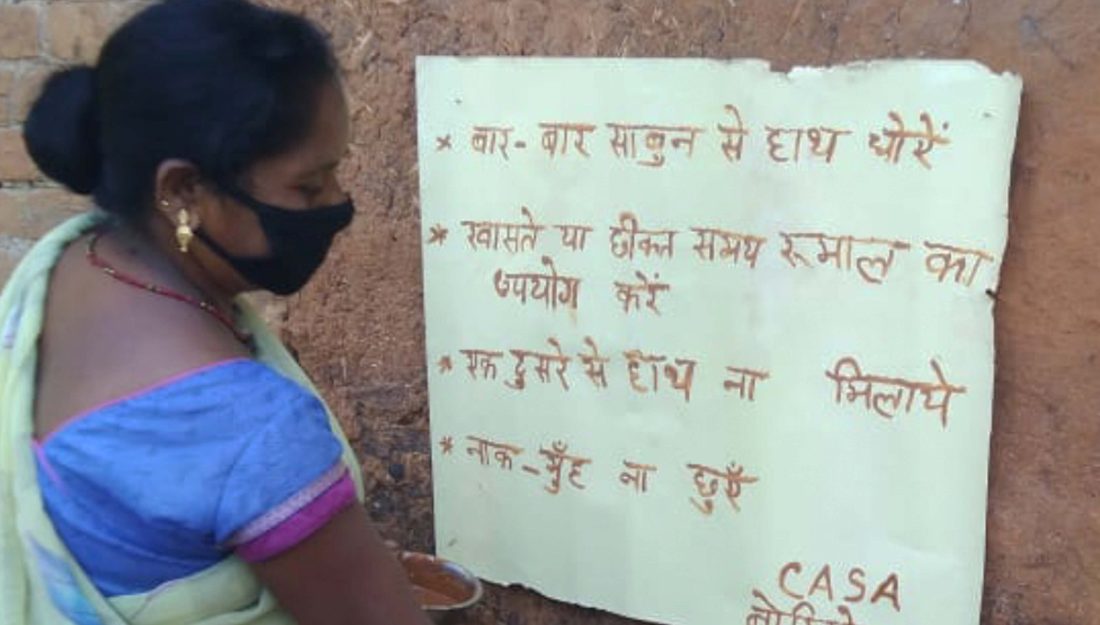 * बार-बार साबुन से हाथ धोरें
* खासते या छीकत समय रूमाल का
उपयोग करें
* एक दुसरे से हाथ ना मिलाये
* नाक-मुँह ना छुएँ
CASA